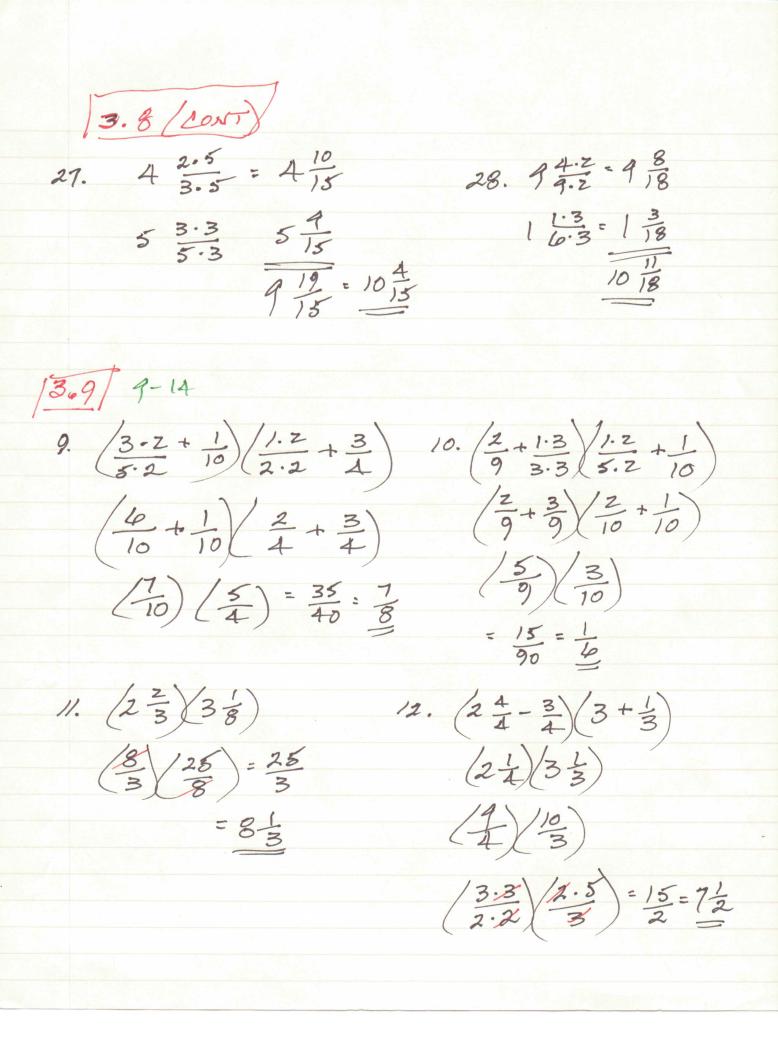 3.8 (CONT)
27. 4 2·5/3·5 = 4 10/15
5 3·3/5·3 5 9/15
9 19/15 = 10 4/15
28. 9 4·2/9·2 = 9 8/18
1 1·3/6·3 = 1 3/18
10 11/18
3.9 9-14
9. (3·2/5·2 + 1/10)(1·2/2·2 + 3/4)
(6/10 + 1/10)(2/4 + 3/4)
(7/10)(5/4) = 35/40 = 7/8
10. (2/9 + 1·3/3·3)(1·2/5·2 + 1/10)
(2/9 + 3/9)(2/10 + 1/10)
(5/9)(3/10)
= 15/90 = 1/6
11. (2 2/3)(3 1/8)
(8/3)(25/8) = 25/3
= 8 1/3
12. (2 4/4 - 3/4)(3 + 1/3)
(2 1/4)(3 1/3)
(9/4)(10/3)
(3·3/2·2)(2·5/3) = 15/2 = 7 1/2